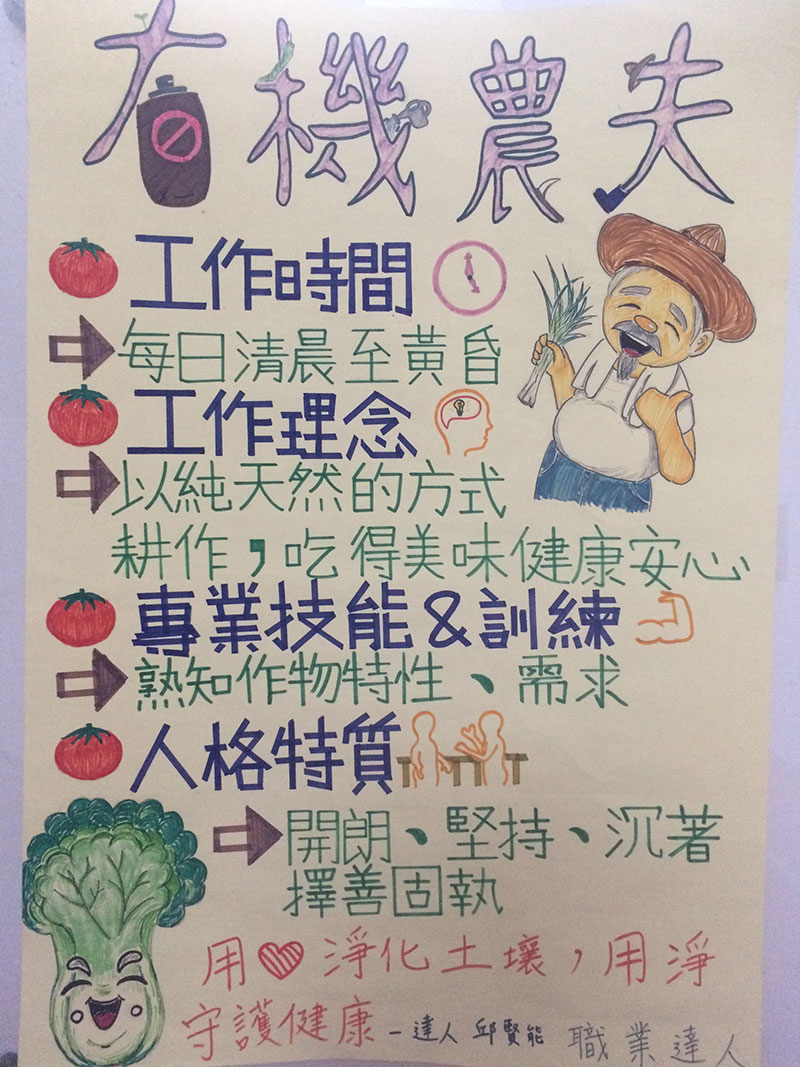 有機農夫
工作時間
每日清晨至黃昏
工作理念
以純天然的方式
耕作，吃得美味健康安心
專業技能&訓練
熟知作物特性、需求
人格特質
開朗、堅持、沉著
擇善固執
用♥淨化土壤，用淨
守護健康－達人 邱賢能 職業達人